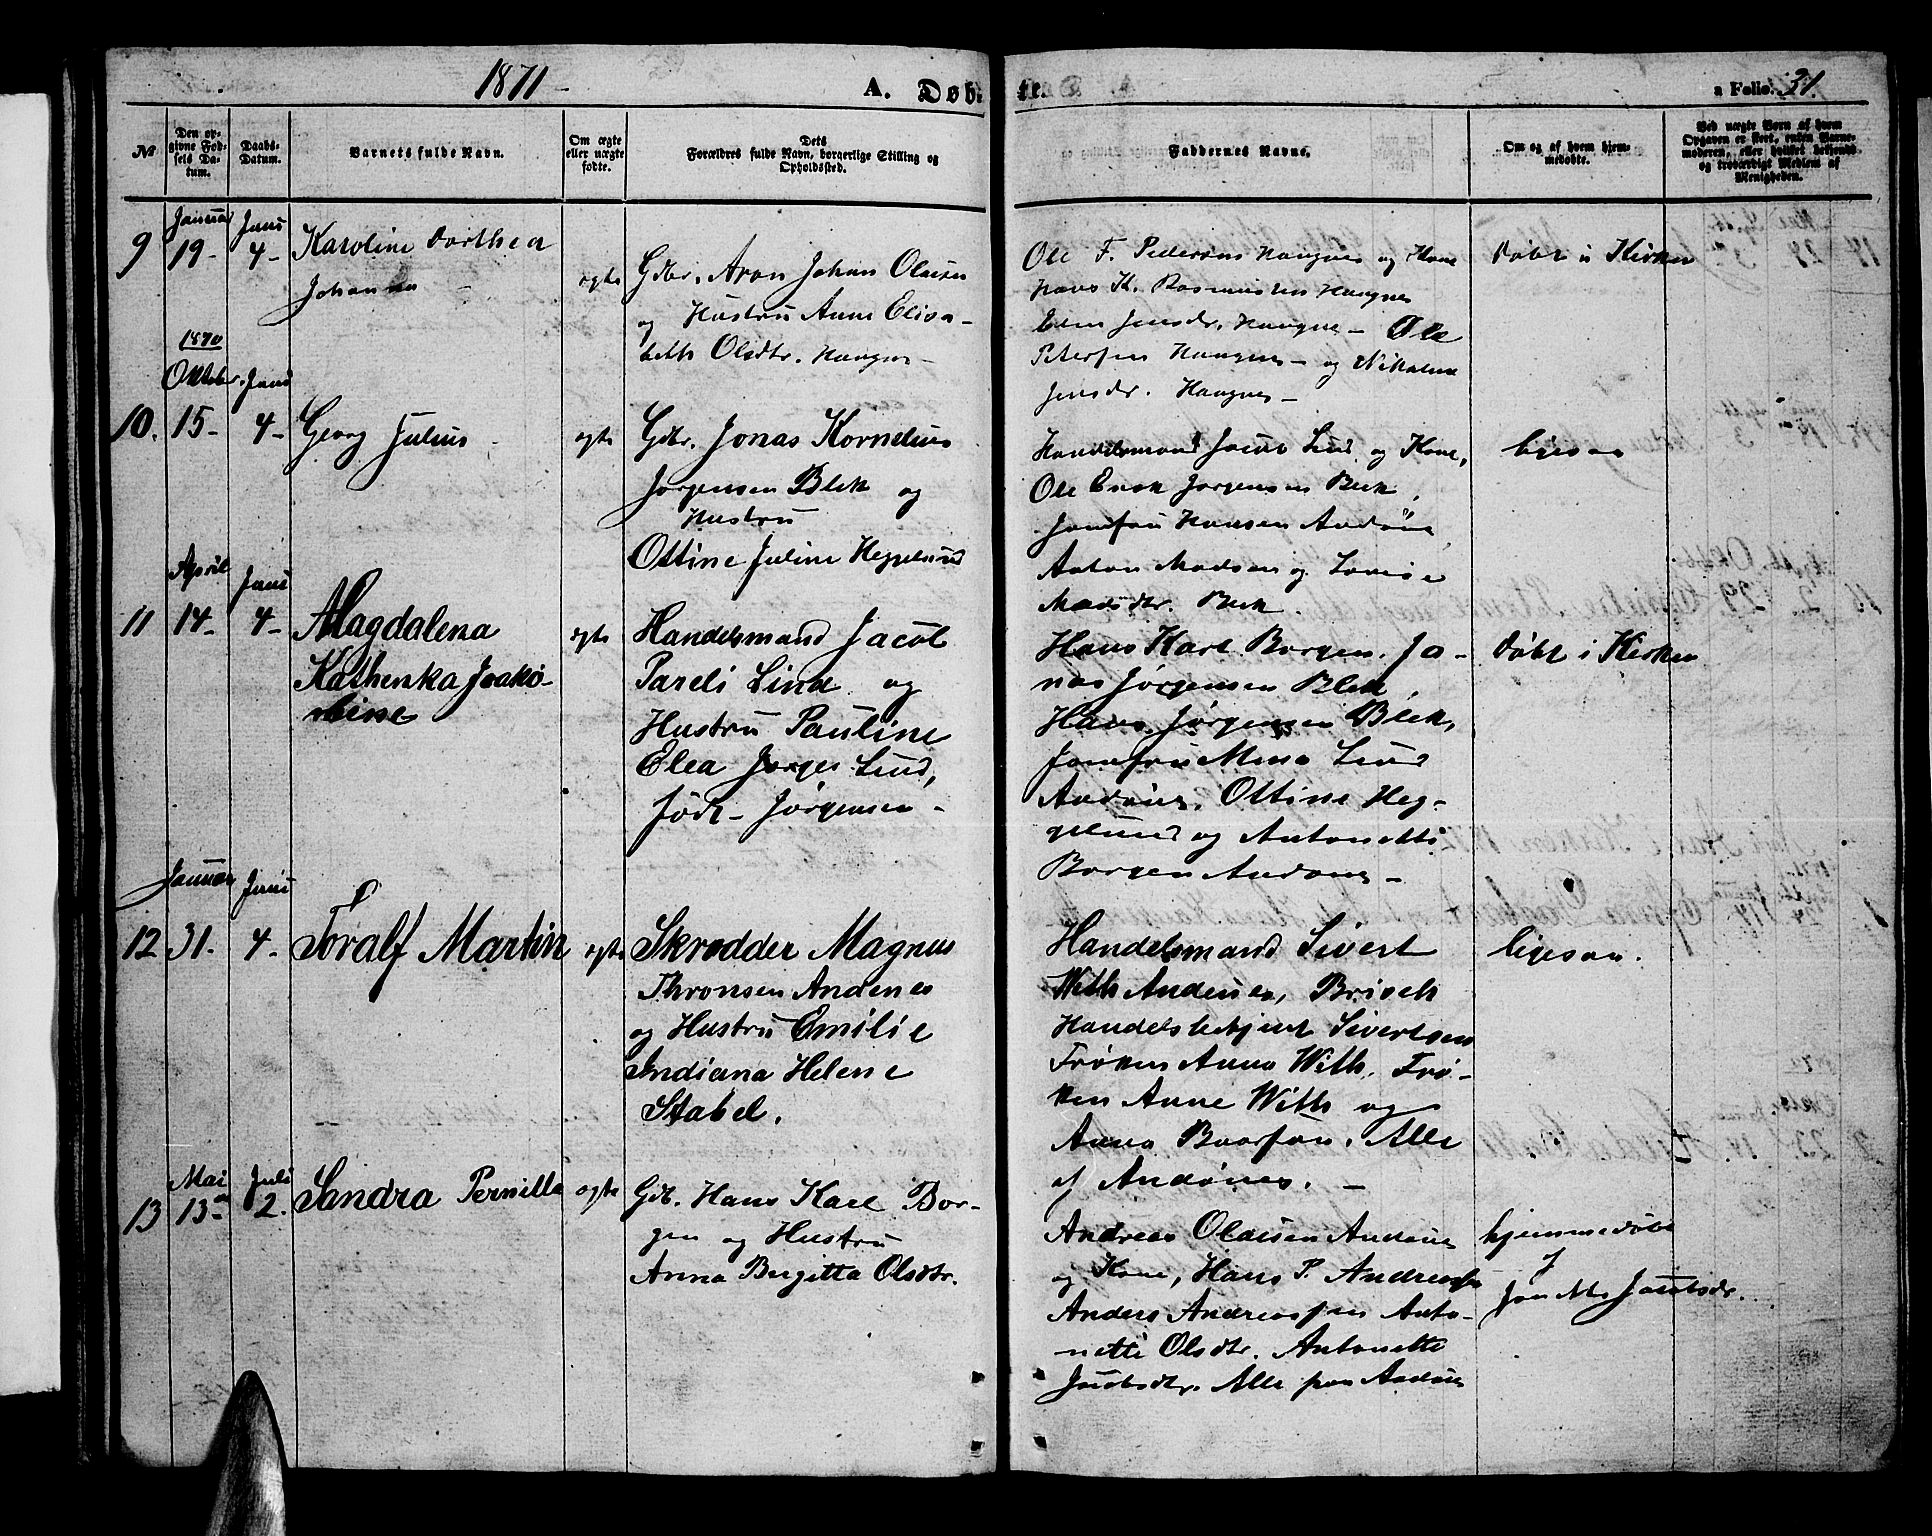 1871 - A. Døb- te. a Folio. 31.
№ Den op-givne Fød-sels Da-tum. Daabs-Datum. Barnets fulde Navn. Om ægte eller uægte fødte. Dets Forældres fulde Navn, borgerlige Stilling og Opholdssted. Faddernes Navne. Om og af hvem hjem-medøbte. Ved uægte Børn af hvem Opgaven er skeet, enten Barne-moderen, eller hvilket bekjendt og troværdigt Medlem af Menigheden.
9 Januar 19- Juni 4- Karoline Dorthea
Johanna -
ægte
Gdbr. Aron Johan Olausen
og Hustru Anne Elisa-
beth Olsdtr. Haugnes -
Ole F. Pedersens Haugnes og Kone
Hans K. Rasmussen Haugnes
Elen Jensdr. Haugnes - Ole
Petersen Haugnes - og Nikoline
Jensdr. Haugnes -
Døbt i Kirken
10. 1870 Oktobr. 15- Juni 4- Georg Julius -
ægte
Gdbr. Jonas Kornelius
Jørgensen Blek og
Hustru
Ottine Juline Heggelund
Handelsmand Jacob Lind og Kone,
Ole Enok Jørgensen Blek,
Jomfru Hansen Andønes
Anton Madsen og Lovise
Madsdtr. Blek.
ligesaa
11 April 14- Juni 4- Magdalena
Kathenka Joakø-
bine
ægte
Handelsmand Jacob
Pareli Lind og
Hustru Pauline
Elea Jørges Lind,
født - Jørgensen -
Hans Karl Borgen, Jo-
nas Jørgensen Blek,
Hans Jørgensen Blek,
Jomfru Mina Lind
Andønes, Ottine Heg-
gelund og Antonette
Borgen Andønes -
Døbt i Kirken
12 Januar 31. Juni 4- Toralf Martin
ægte
Skrædder Magnus
Thronsen Andenes
og Hustru Emilie
Indiana Helene
Stabel.
Handelsmand Sivert
With Andenes, Brisch
Handelsbetjent Sivertsen
Frøken Anna With, Frø-
ken Anne With og
Anna Baarsøn. Alle
af Andønes. -
ligesaa.
13 Mai 13- Juli 2. Sandra Pernilla
ægte
Gdb. Hans Karl Bor-
gen og Hustru
Anna Bergitta Olsdtr.
Andreas Olausen Andønes
og Kone, Hans P. Andreassen
Anders Andreassen Anto-
nette Olsdtr. Antonette
Jacobsdtr. Alle paa Andønes
hjemmedøbt
af
Jacobsdr.